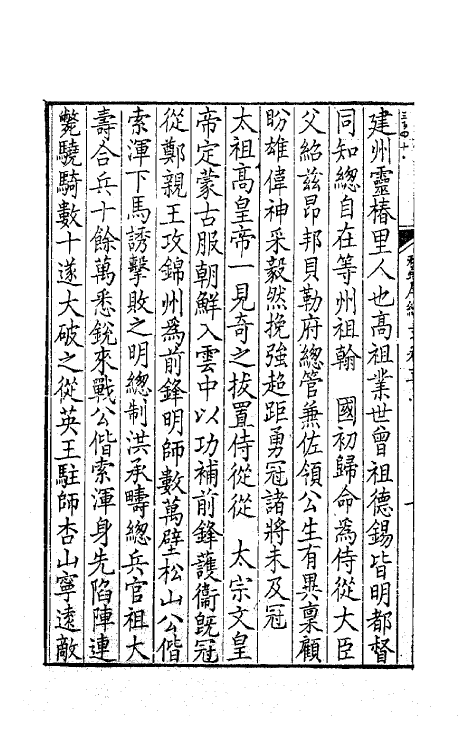 建州靈椿里人也高祖業世曾祖德錫皆明都督
同知總自在等州祖翰　國初歸命爲侍從大臣
父紹茲昂邦貝勒府總管兼佐領公生有異稟顧
盼雄偉神采毅然挽強超距勇冠諸將未及冠
太祖高皇帝一見奇之拔置侍從從　太宗文皇
帝定蒙古服朝鮮入雲中以功補前鋒護衞旣冠
從鄭親王攻錦州爲前鋒明師數萬壁松山公偕
索渾下馬誘擊敗之明總制洪承疇總兵官祖大
壽合兵十餘萬悉銳來戰公偕索渾身先陷陣連
斃驍騎數十遂大破之從英王駐師杏山寧遠敵